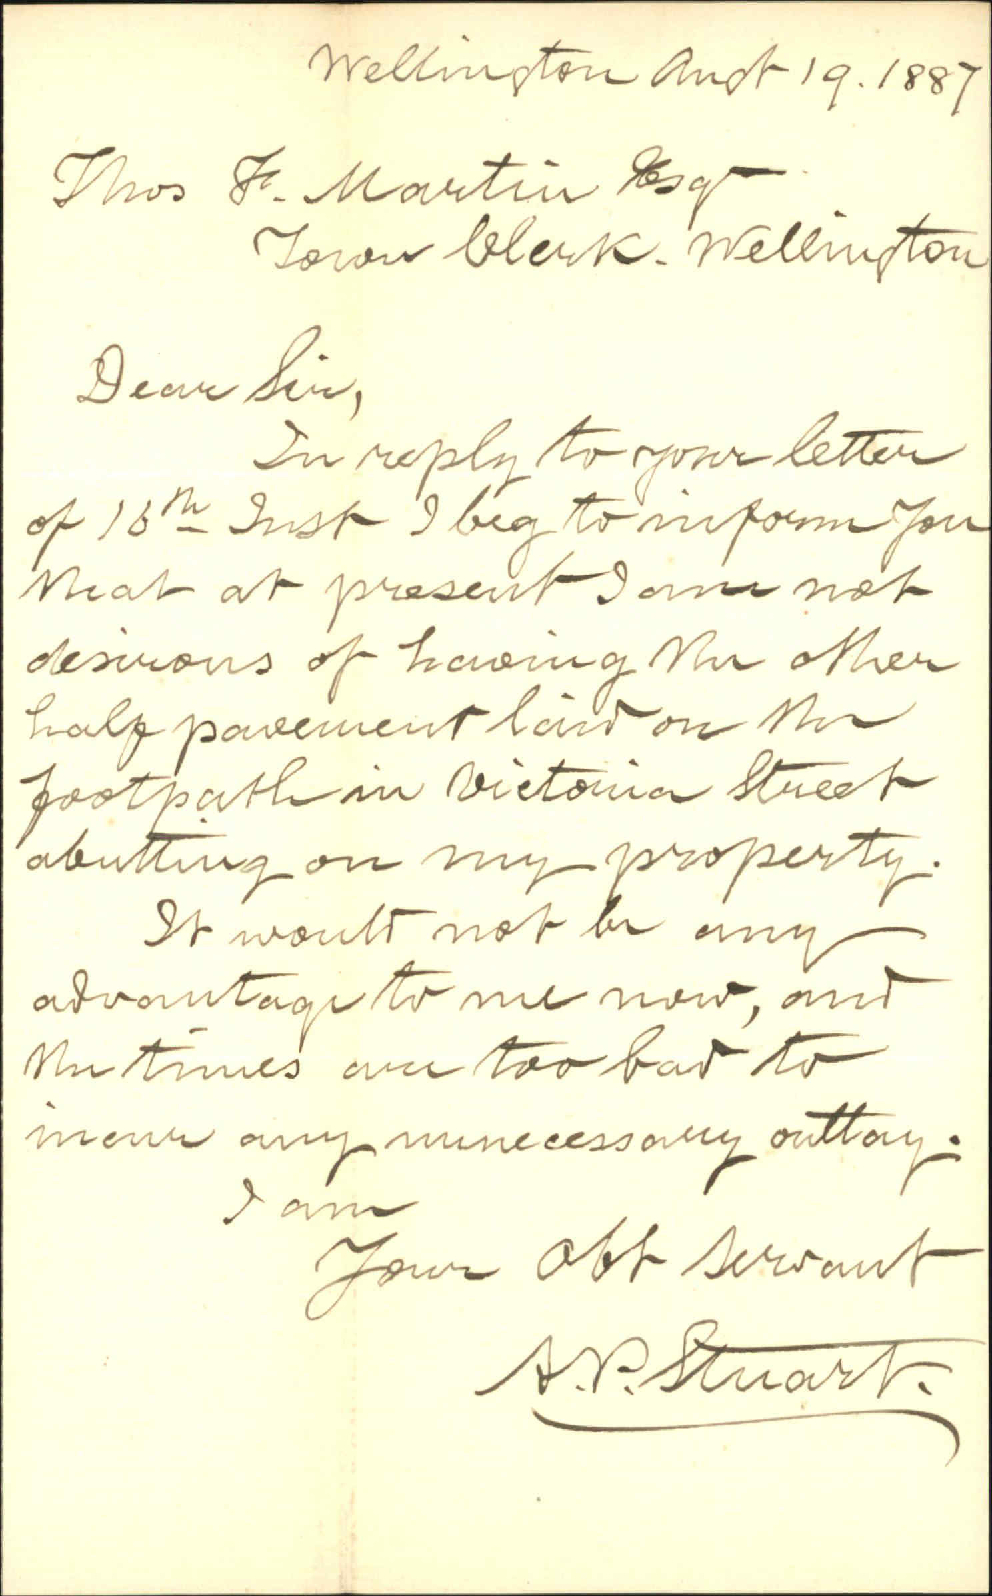 Wellington Augt 19. 1887
Thos F. Martin Esqr
Town Clerk. Wellington
Dear Sir,
In reply to your letter
of 16th Inst I beg to inform you
that at present I am not
desirous of having the other
half pavement laid on the
footpath in Victoria Street
abutting on my property.
It would not be any
advantage to me now, and
the times are too bad to
incur any unnecessary outlay.
I am
Your Obt Servant
A. P. Stuart.